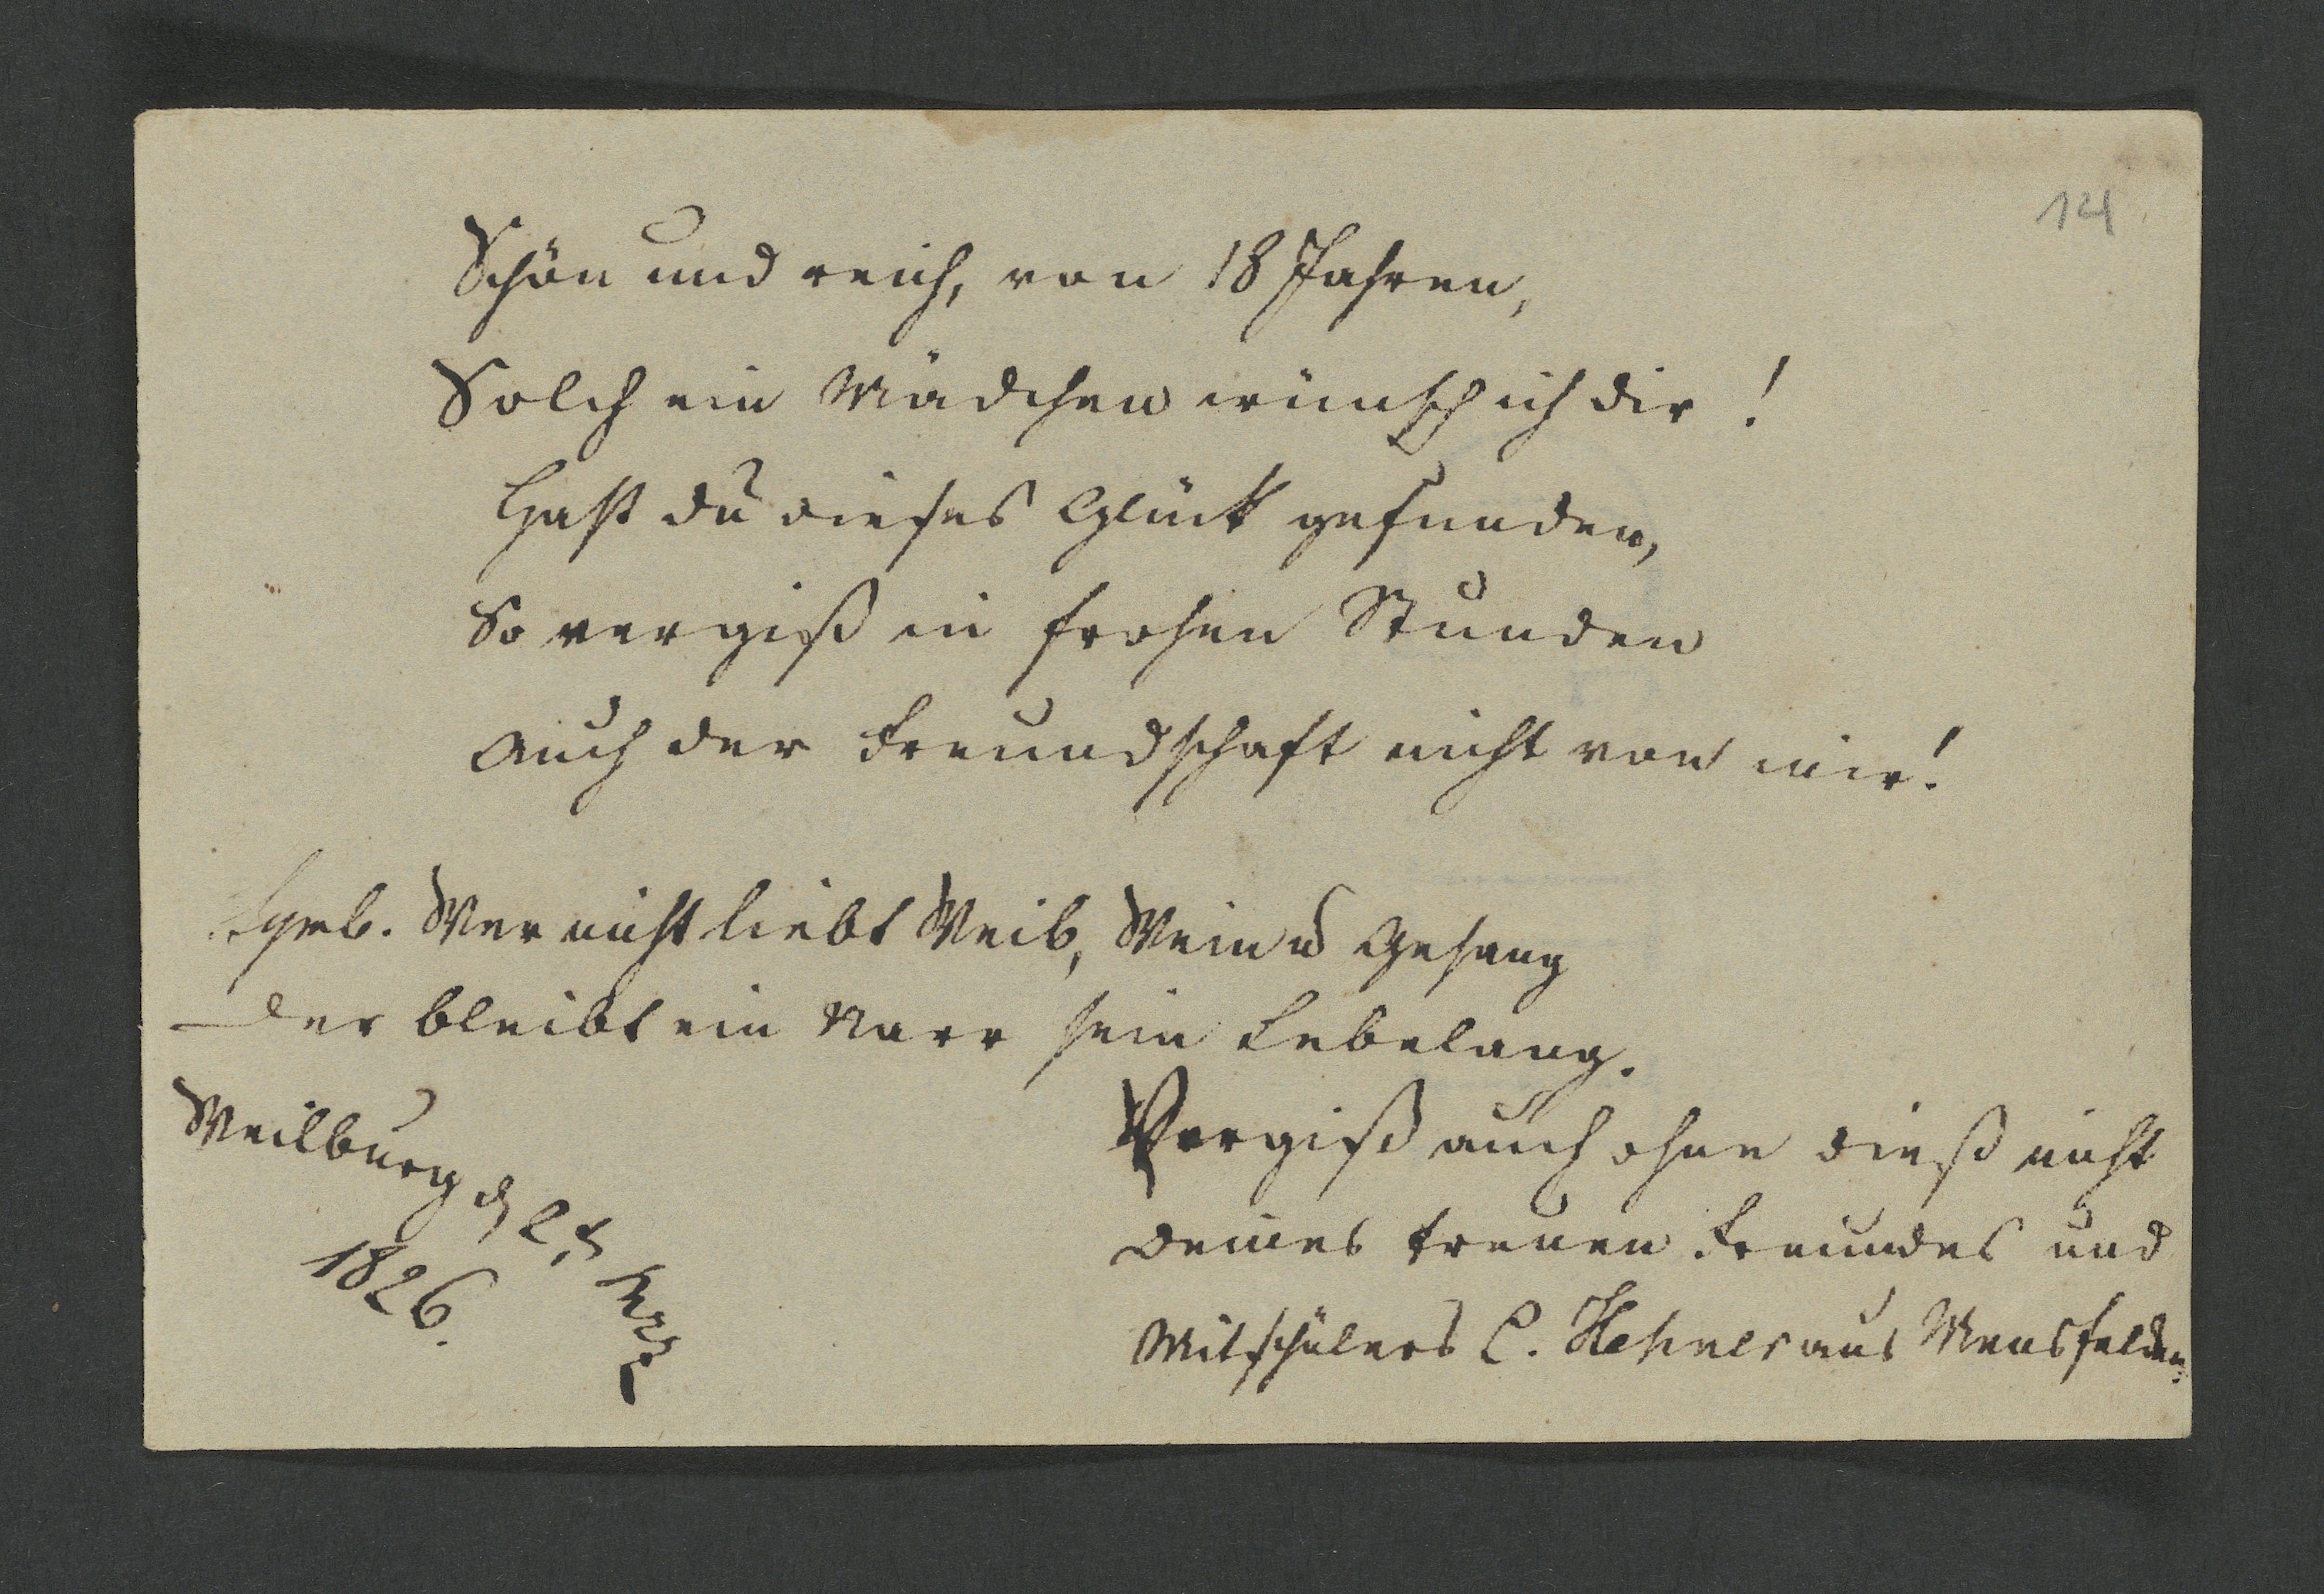 14
Schön und reich, von 18 Jahren,
Solch ein Mädchen wünsch ich dir!
Hast du dieses Glück gefunden,
So vergiß in frohen Stunden
Auch der Freundschaft nicht von mir!
Symb. Wer nicht liebt Weib, Wein u Gesang
Der bleibt ein Narr sein Lebelang.
Weilburg d 2t
1826.
Vergiß auch ohne dieß nicht
Deines treuen Freundes und
Mitschülers C. Hehner aus Mensfelden.